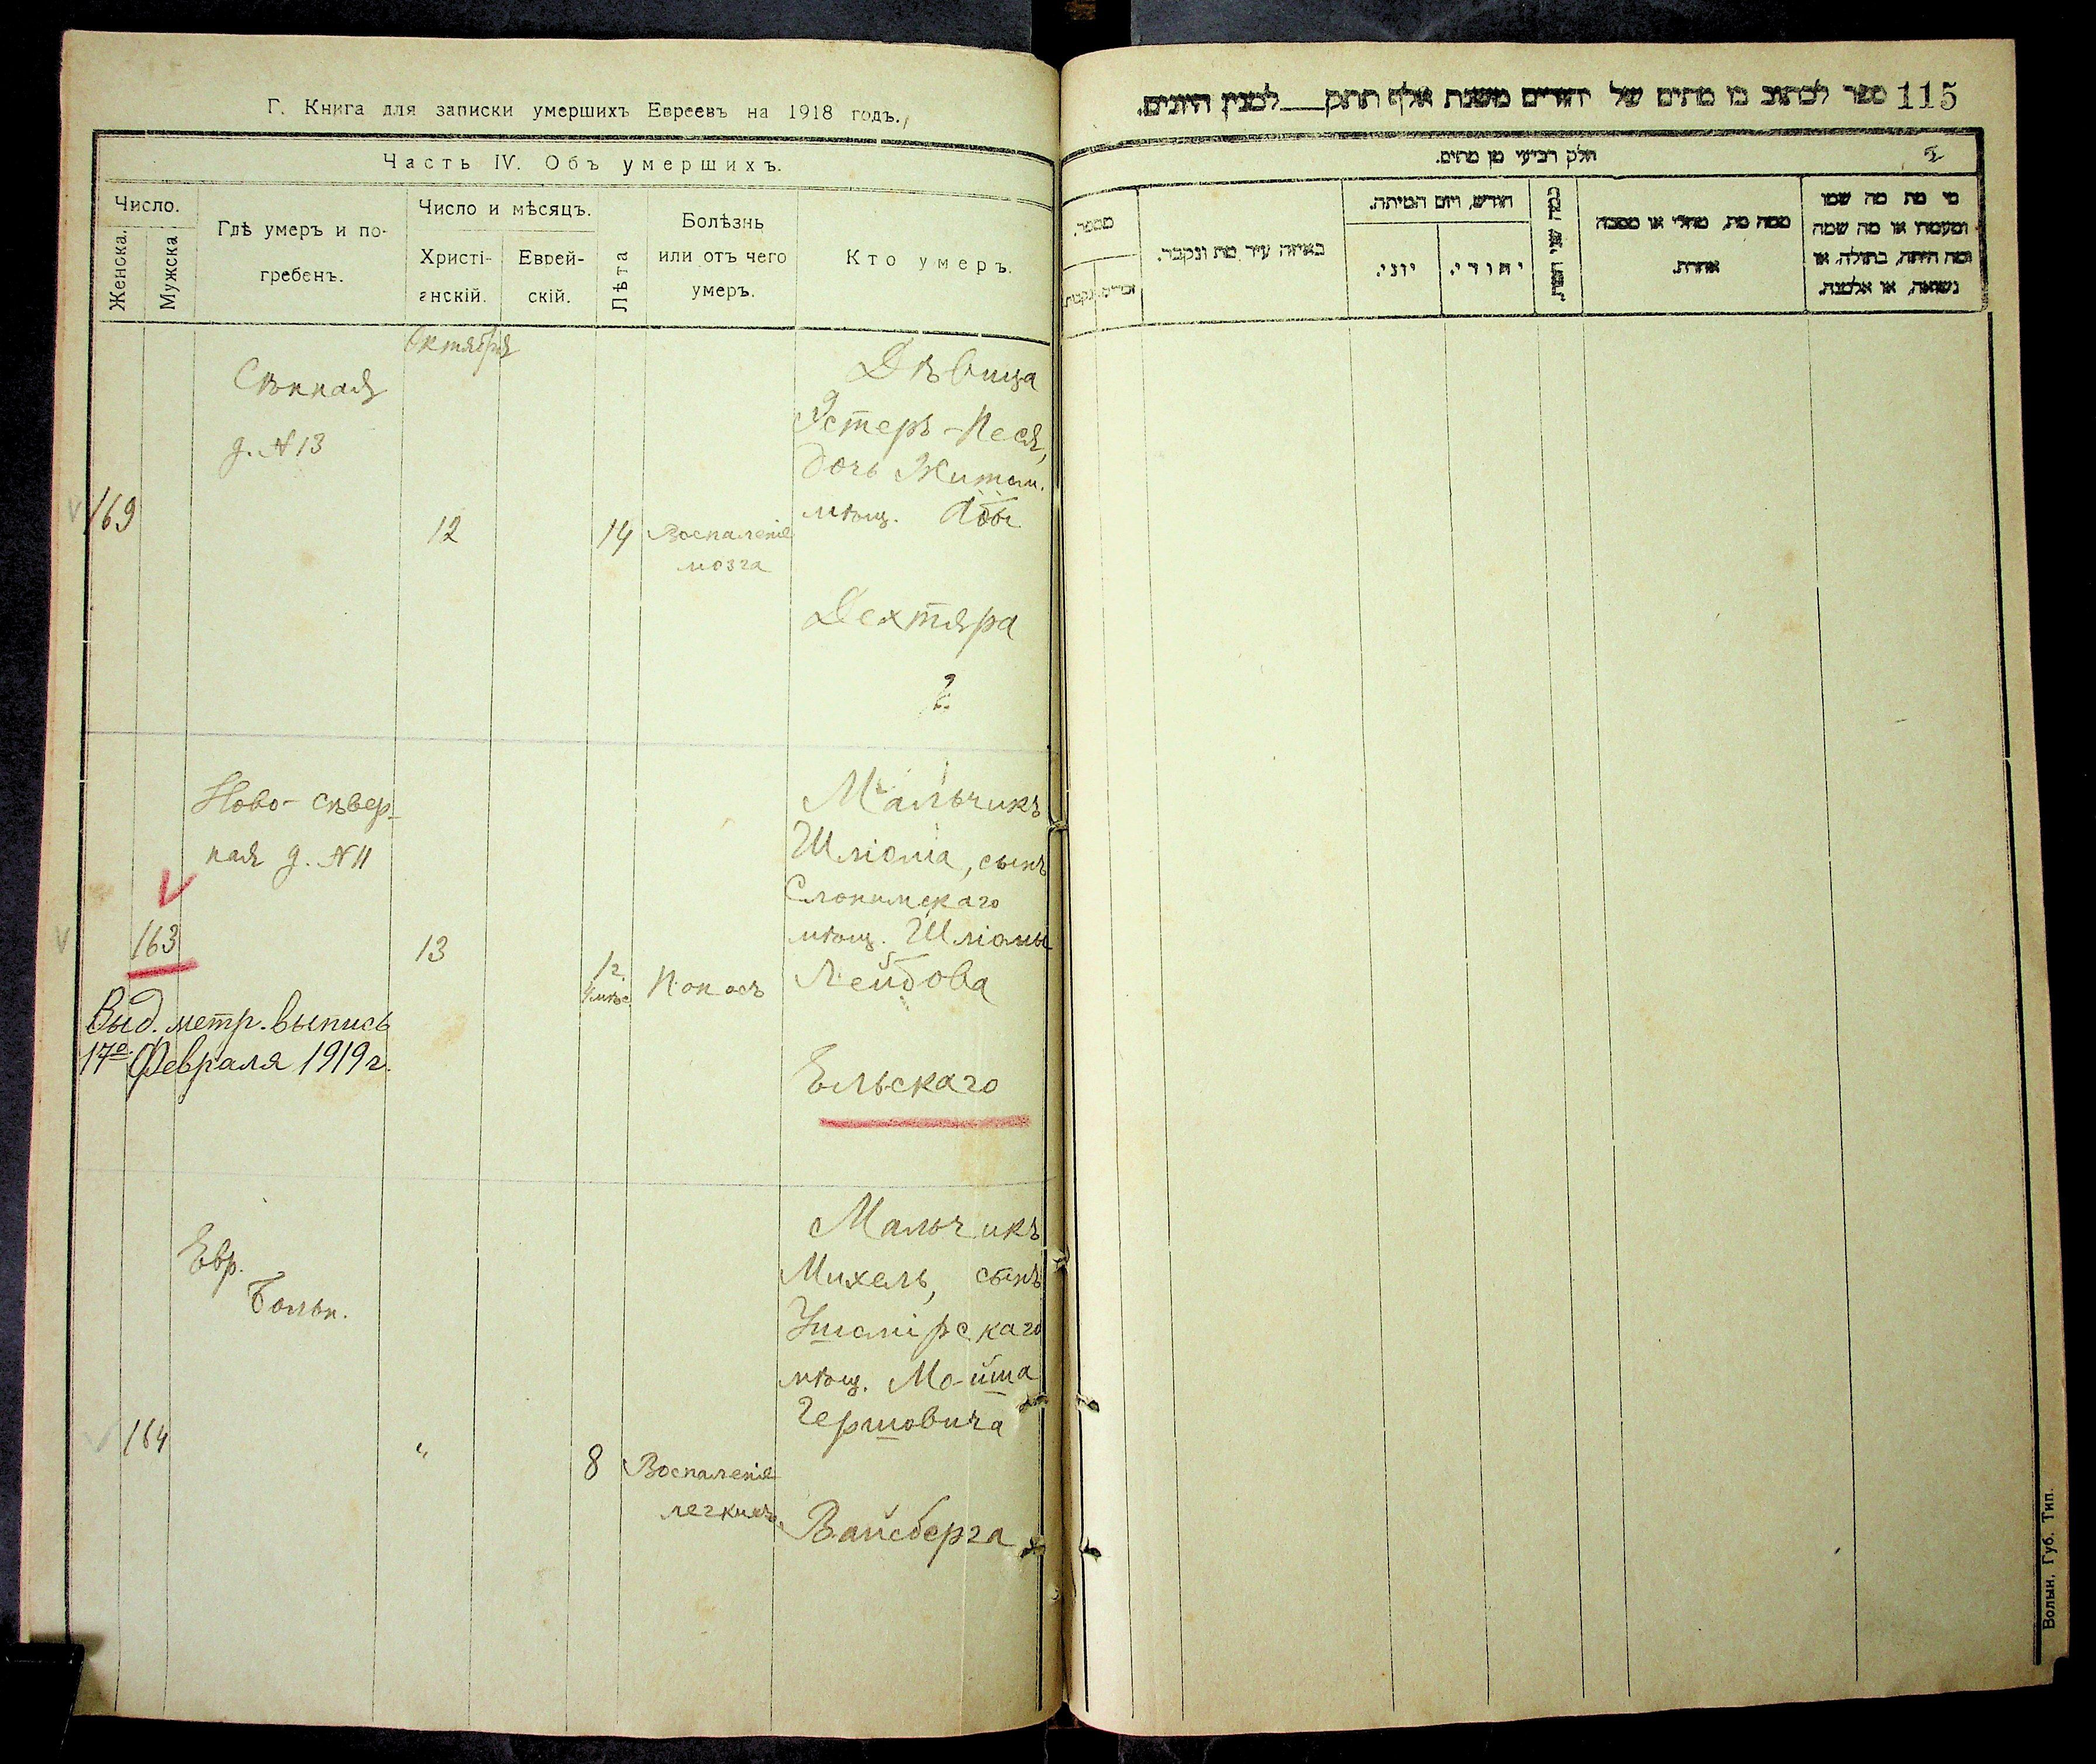 Г. Книга для записки умершихъ Евреевъ на 1918 годъ.
Часть IV. Объ умершихъ.
Число.
Женска.
Мужска
Гдѣ умеръ и по-
гребенъ.
Число и мѣсяцъ.
Христі-
анскій.
Еврей-
скій.
Лѣта
Болѣзнь
или отъ чего
умеръ.
Кто умеръ.
Октября
169
Сѣнная
д. № 13
12
14
Воспаленіе
мозга
Дѣвица
Эстеръ-Песя,
дочь Житом.
мѣщ.
Дехтяра
?
Ново-сѣвер-
ная д. № 11
163
13
1 г.
Поносъ
Мальчикъ
Шліома, сынъ
Слонимскаго
мѣщ. Шліомы
Лейбова
Ельскаго
Выд. метр. выпись
17го Февраля 1919 г.
Евр.
больн.
164
"
8
Воспаленіе
легкихъ.
Мальчикъ
Михель, сынъ
мѣщ. Мойша
Гершовича
Вайсберга
115
ספר לכתוב בו מתים של יהודים משנת אלף תתק___למנין היונים.
חלק רביעי מן מתים.
מספר.
זכרים.
נקבות
באיזה עיר מת ונקבר.
חודש, ויום המיתה.
יוני.
יהודי.
ממה מת, מחלי או מסבה
אחרת.
מי מת מה שמו
ומעמדו או מה שמה
ומה היתה, בתולה, או
נשואה, או אלמנה.
Волын. Губ. Тип.